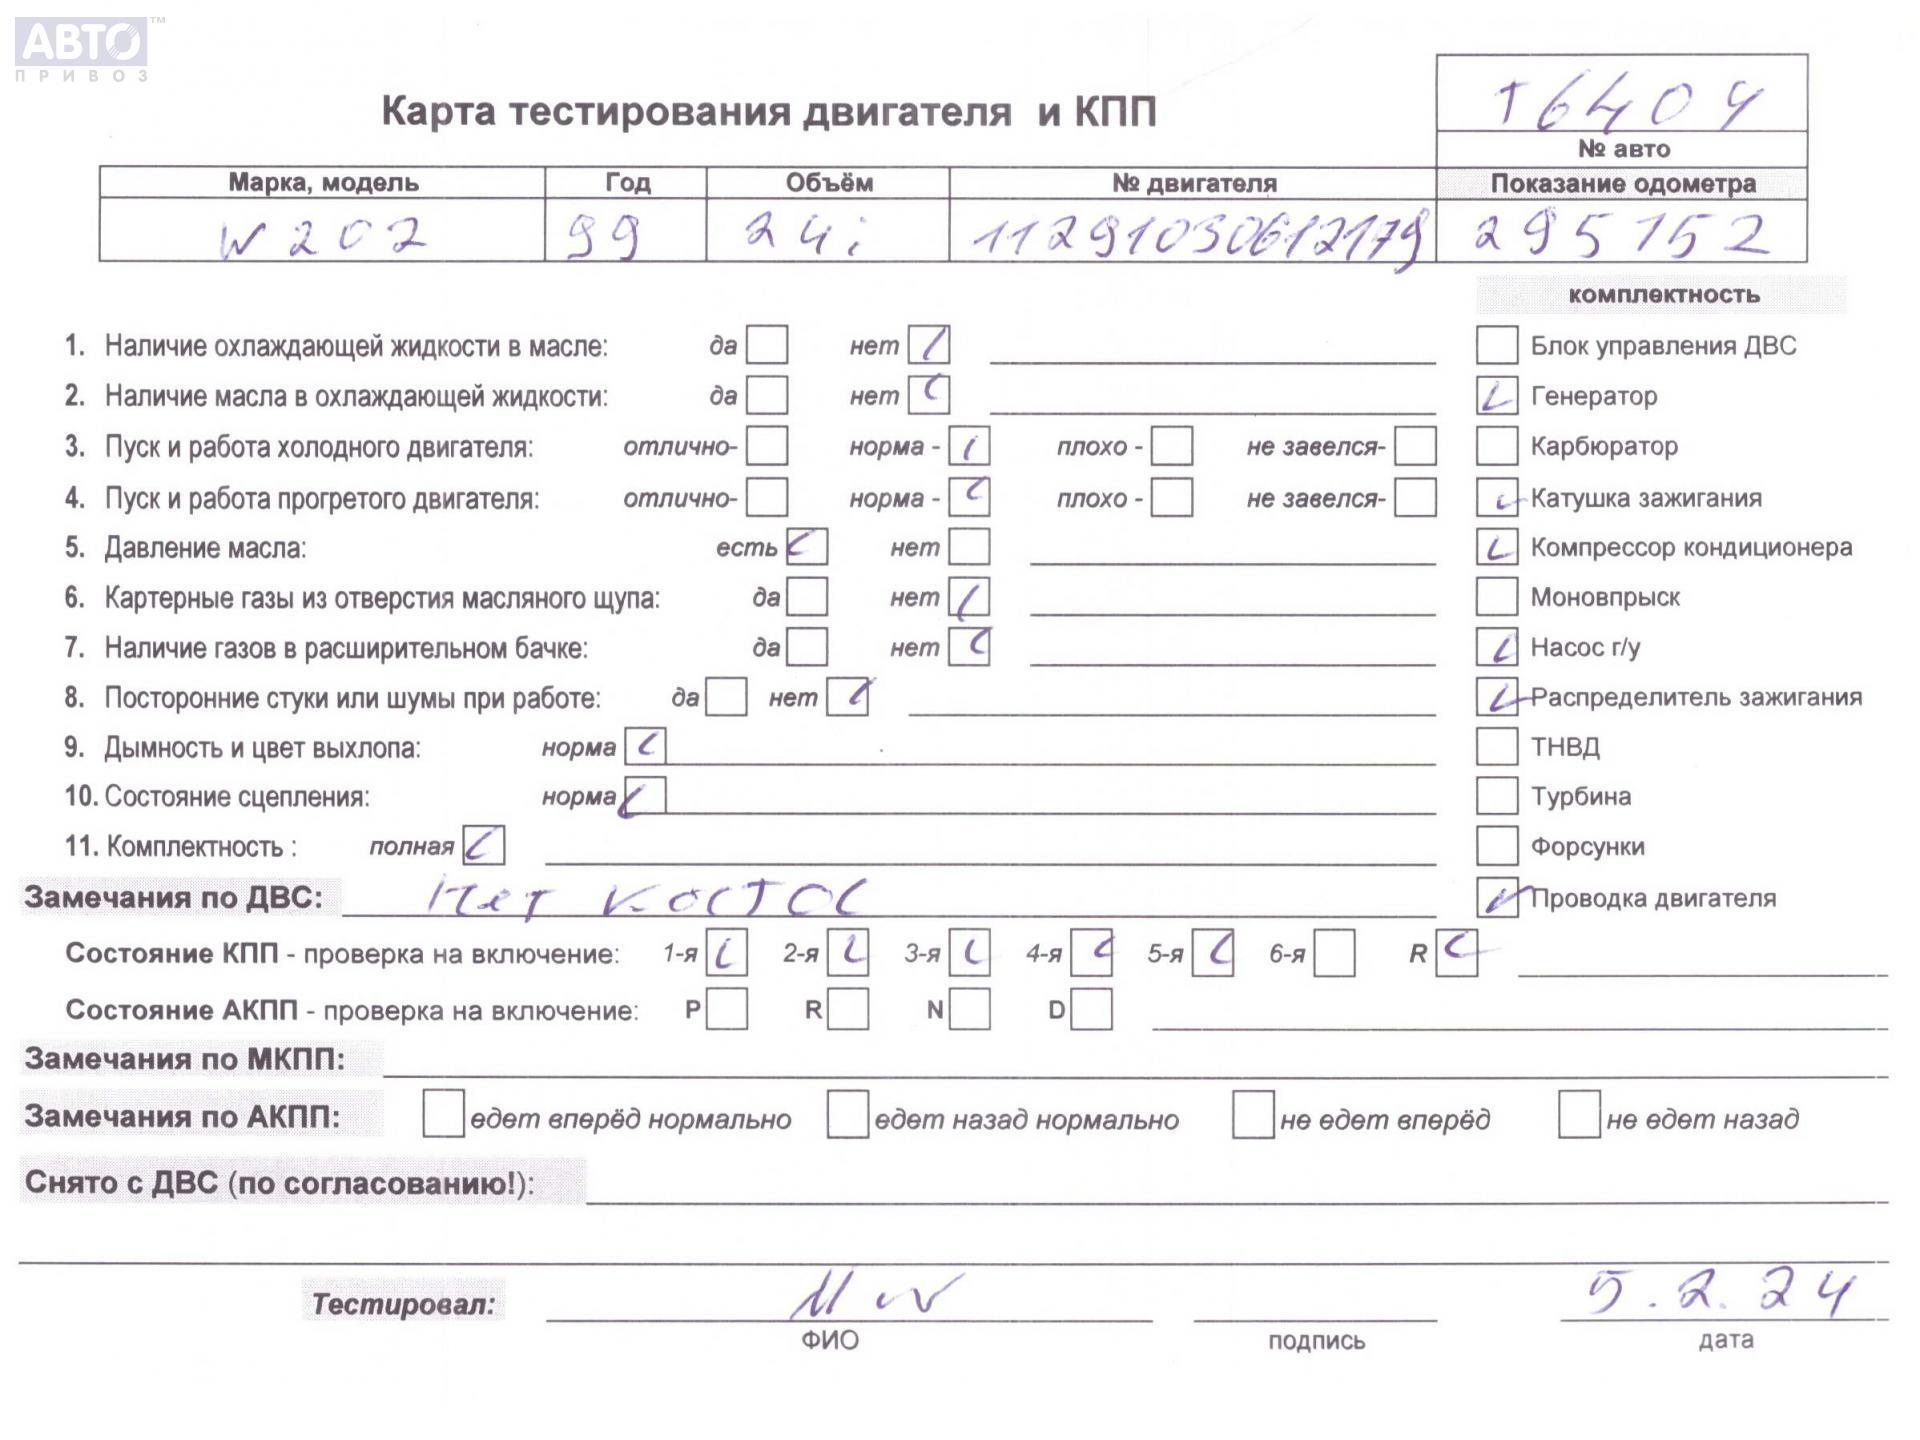 АВТО™
ПРИВОЗ
Карта тестирования двигателя и КПП
T6404
№ авто
Марка, модель Год Объём № двигателя Показание одометра
W202 99 24i 11291030612179 295152
комплектность
1. Наличие охлаждающей жидкости в масле: да нет Блок управления ДВС
2. Наличие масла в охлаждающей жидкости: да нет Генератор
3. Пуск и работа холодного двигателя: отлично- норма - плохо - не завелся- Карбюратор
4. Пуск и работа прогретого двигателя: отлично- норма - плохо - не завелся- Катушка зажигания
5. Давление масла: есть нет Компрессор кондиционера
6. Картерные газы из отверстия масляного щупа: да нет Моновпрыск
7. Наличие газов в расширительном бачке: да нет Насос г/у
8. Посторонние стуки или шумы при работе: да нет Распределитель зажигания
9. Дымность и цвет выхлопа: норма ТНВД
10. Состояние сцепления: норма Турбина
11. Комплектность : полная Форсунки
Замечания по ДВС: Нет Проводка двигателя
Состояние КПП - проверка на включение: 1-я 2-я 3-я 4-я 5-я 6-я R
Состояние АКПП - проверка на включение: P R N D
Замечания по МКПП:
Замечания по АКПП: едет вперёд нормально едет назад нормально не едет вперёд не едет назад
Снято с ДВС (по согласованию!):
Тестировал: 5.2.24
ФИО подпись дата